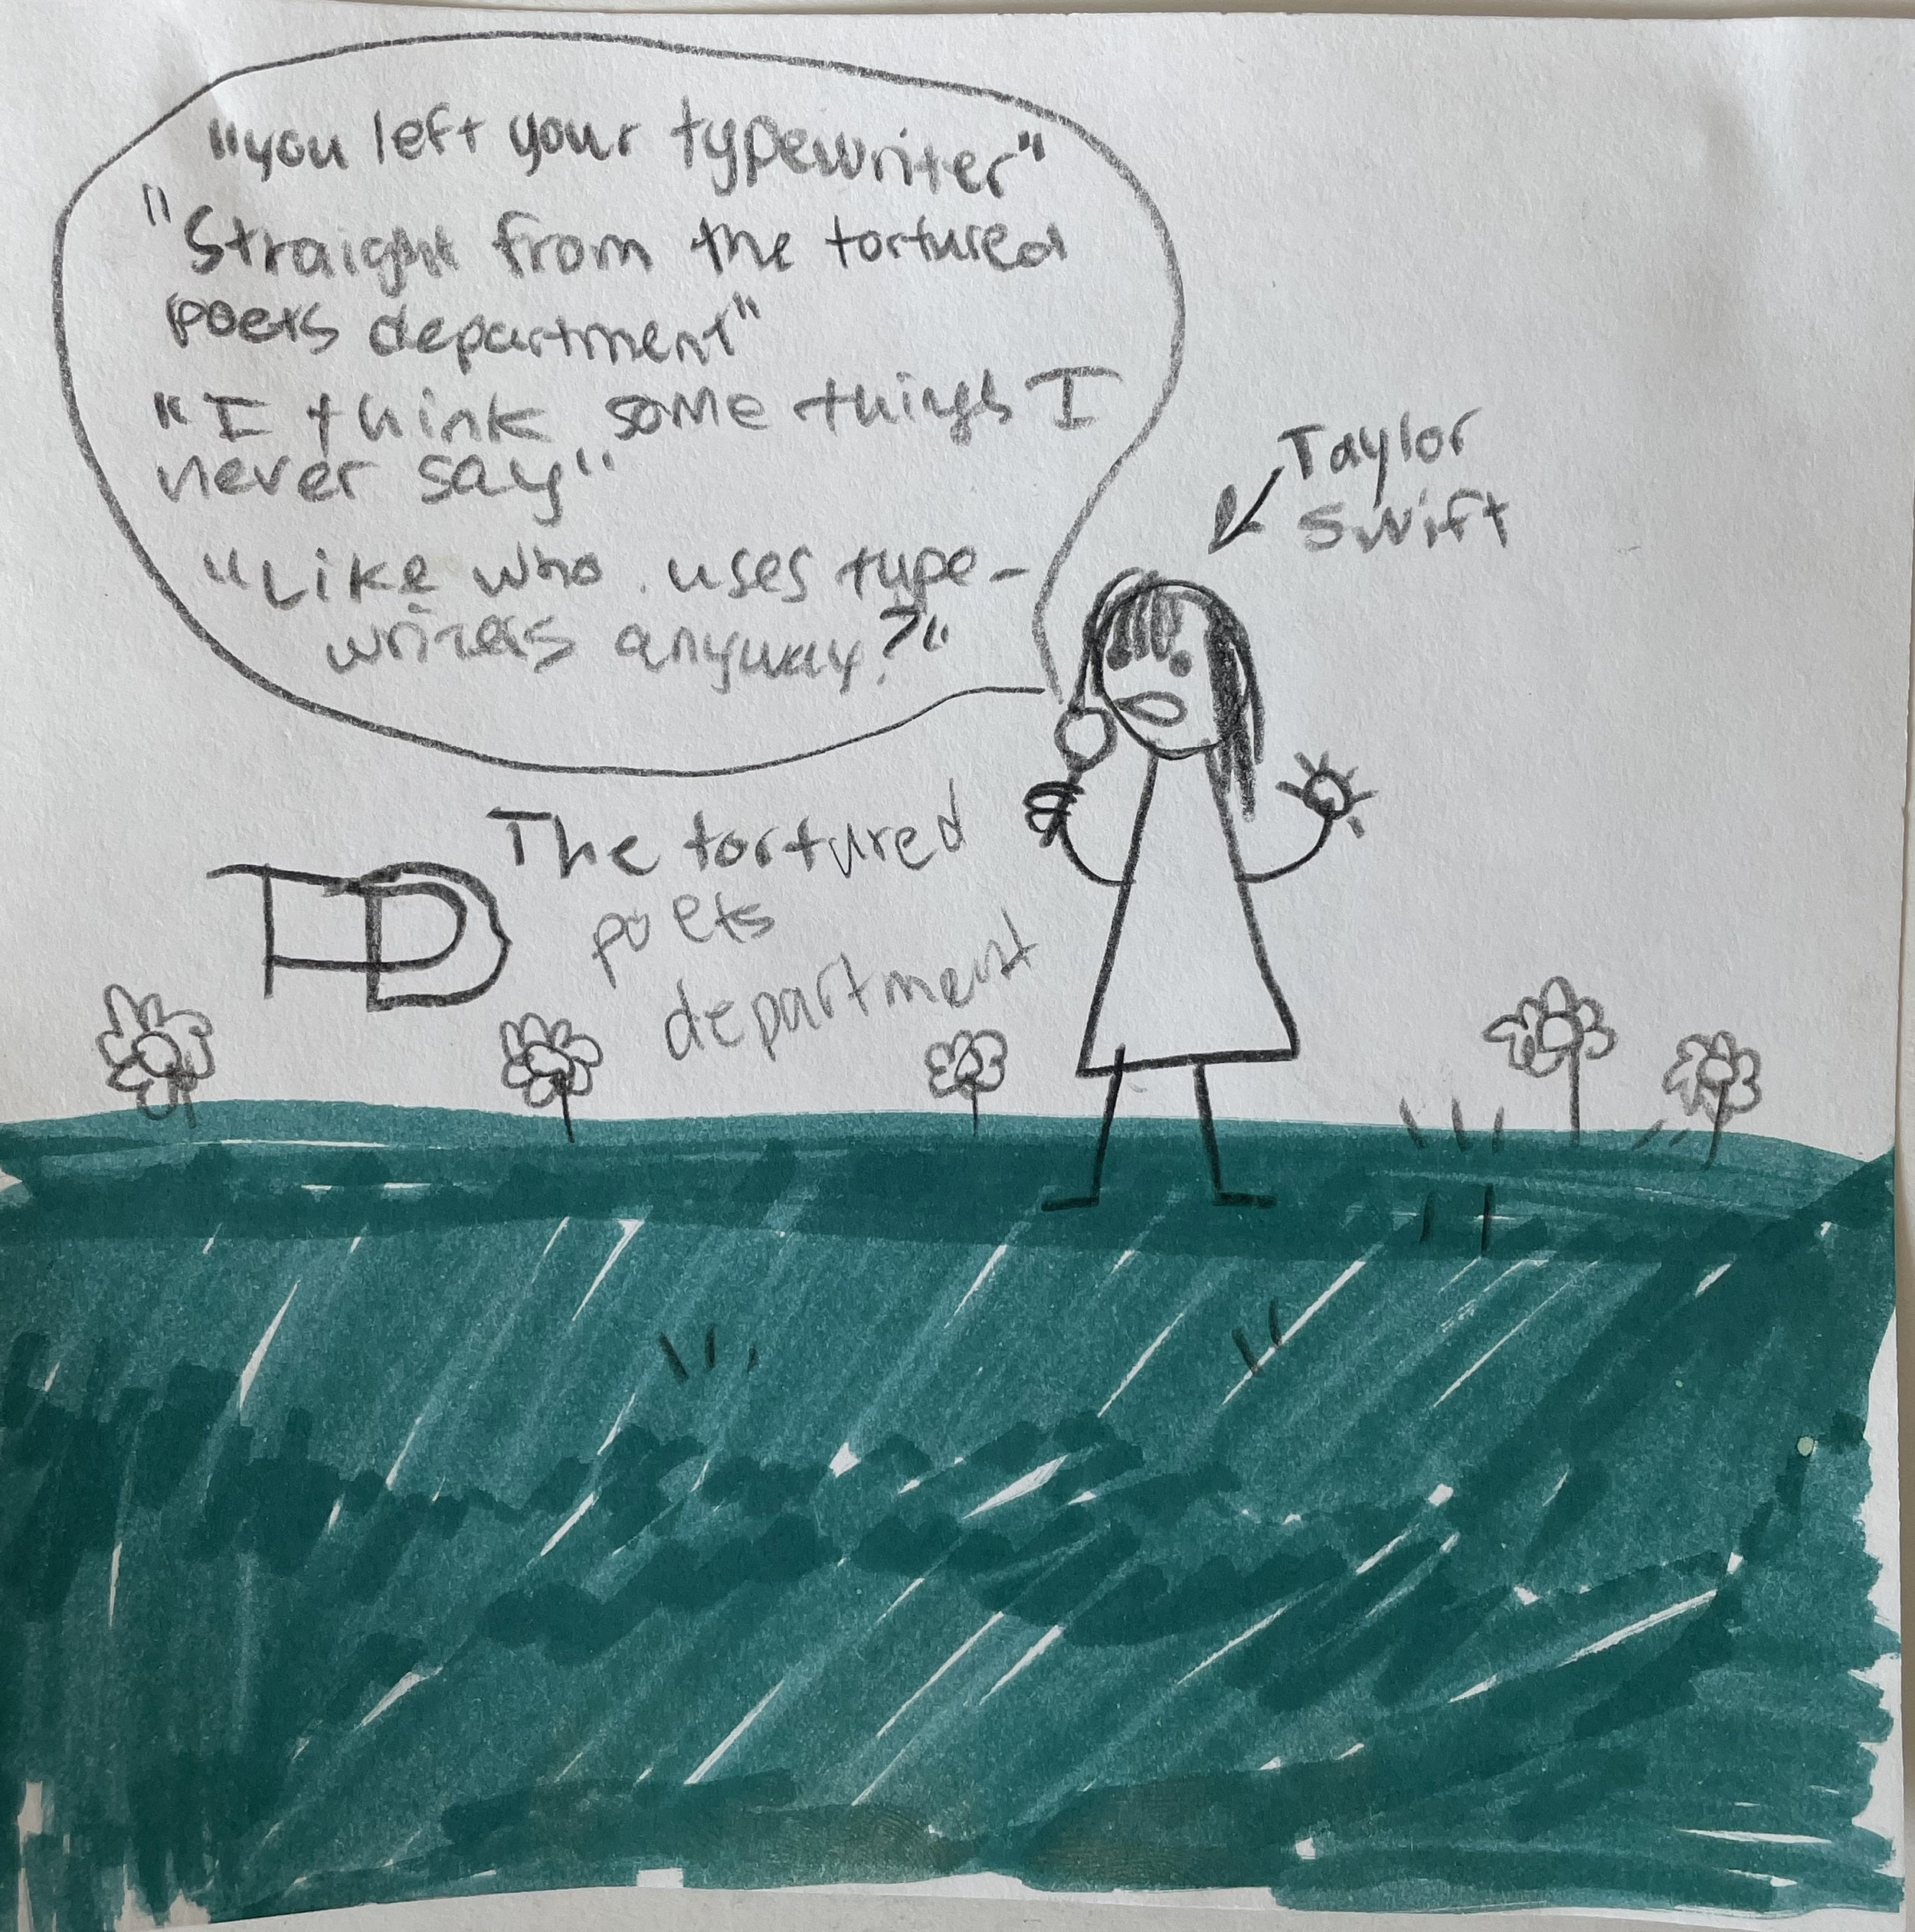 "you left your typewriter"
"Straight from the tortured
poets department"
"I think some things I
never say"
"Like who uses type-
writers anyway?"
Taylor
Swift
The tortured
poets
department